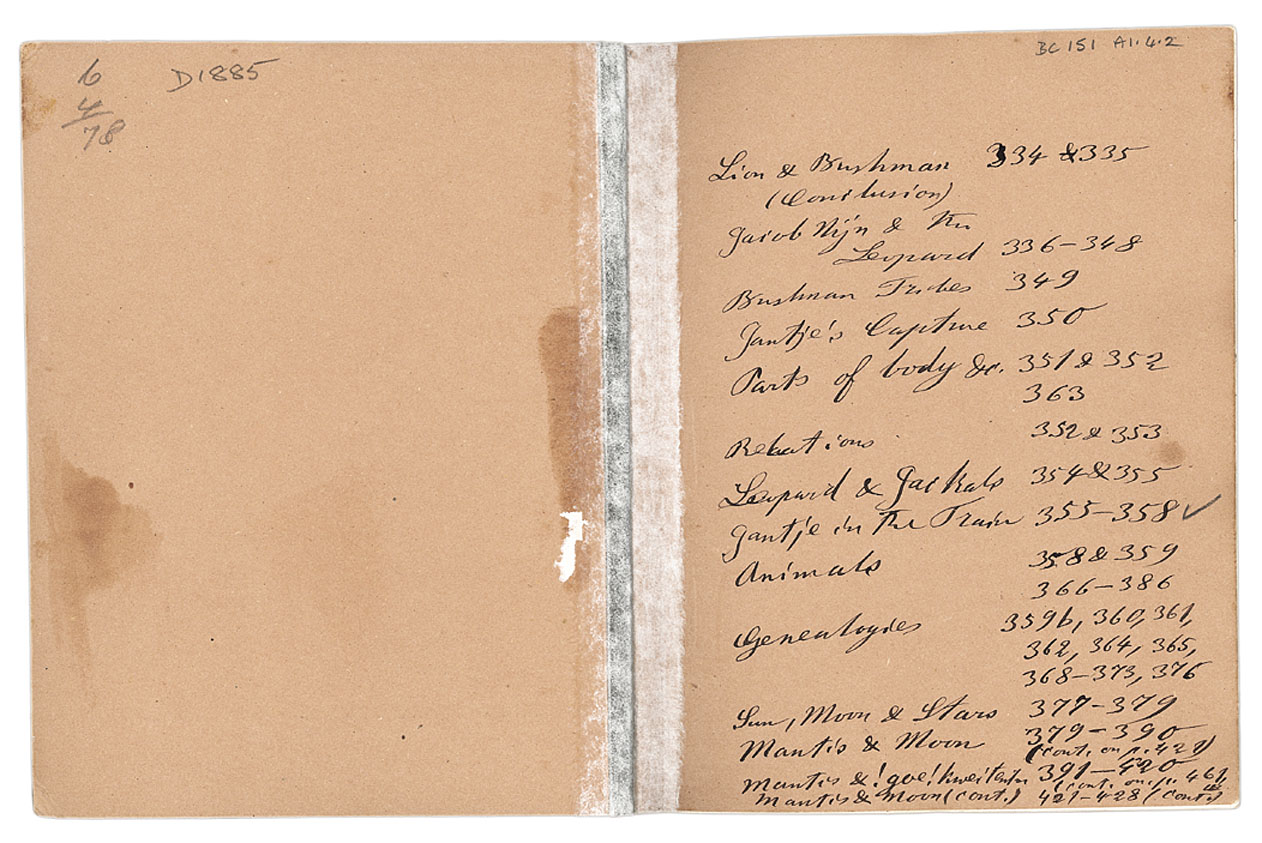 6
4
78
D1885
BC 151 A1.4.2
Lion & Bushman 334 & 335
(Conclusion)
Jacob Nijn & the
Leopard 336-348
Bushman Tribes 349
Jantje's Capture 350
Parts of body &c. 351 & 352
363
Relations 352 & 353
Leopard & Jackals 354 & 355
Jantje in the Train 355-358 ✓
Animals 358 & 359
366-386
Genealogies 359b, 360, 361,
362, 364, 365,
368-373, 376
Sun, Moon & Stars 377-379
Mantis & Moon 379-390
(cont. on p. 421)
Mantis & 391-420
(cont. on p. 461,
Mantis & Moon (cont.) 421-428 (cont.)